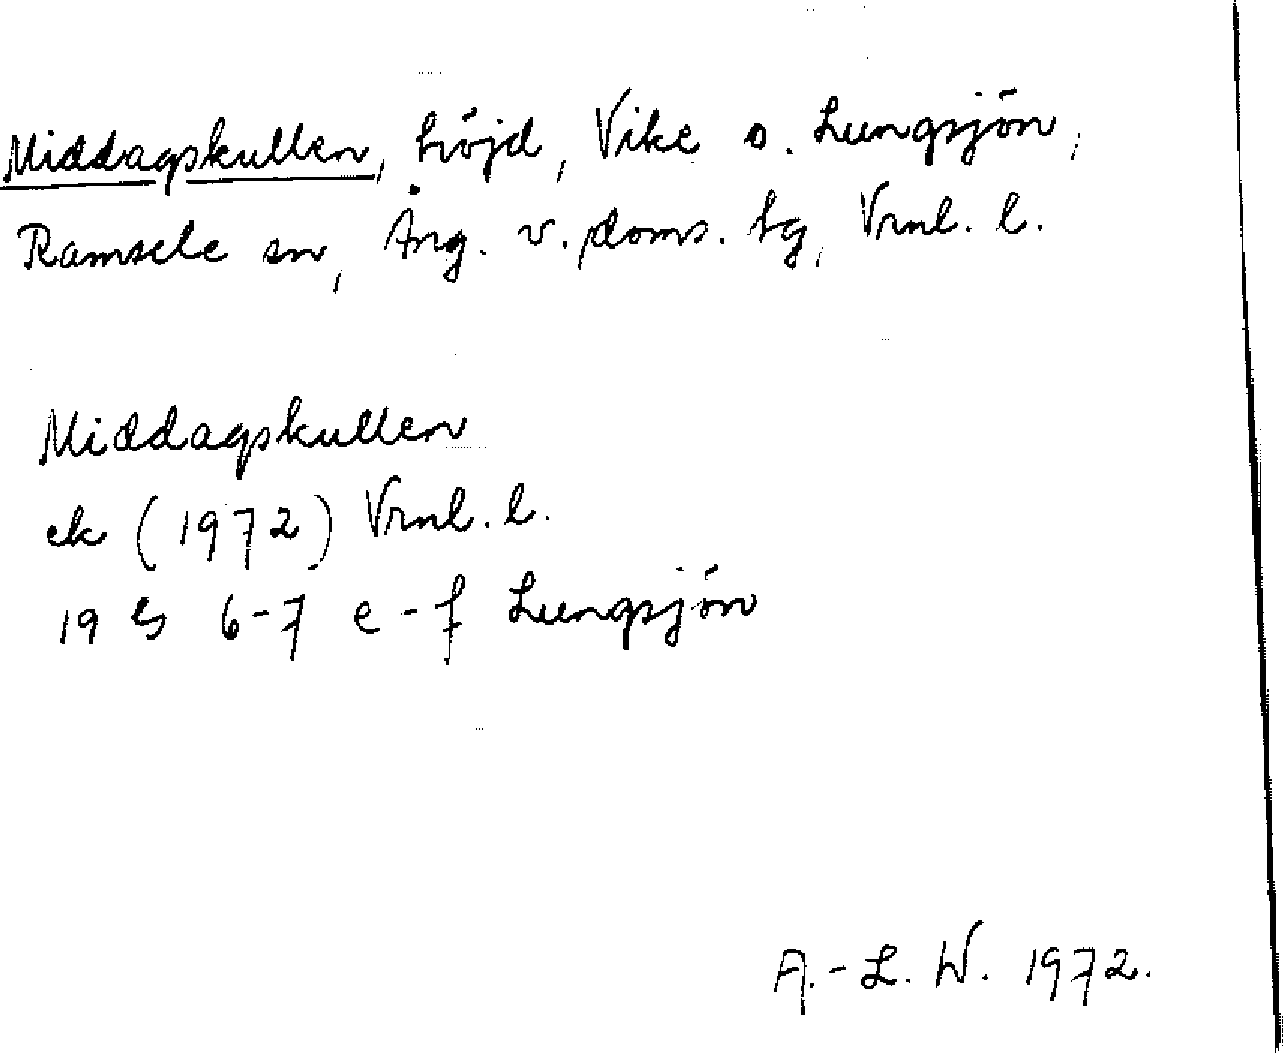 Middagskullen, höjd, Vike o. Lungsjön,
Ramsele sn, Ång. v. doms. tg, Vrnl. l.
Middagskullen
ek (1972) Vrnl. l.
19 G 6-7 e-f Lungsjön
A.-L. W. 1972.